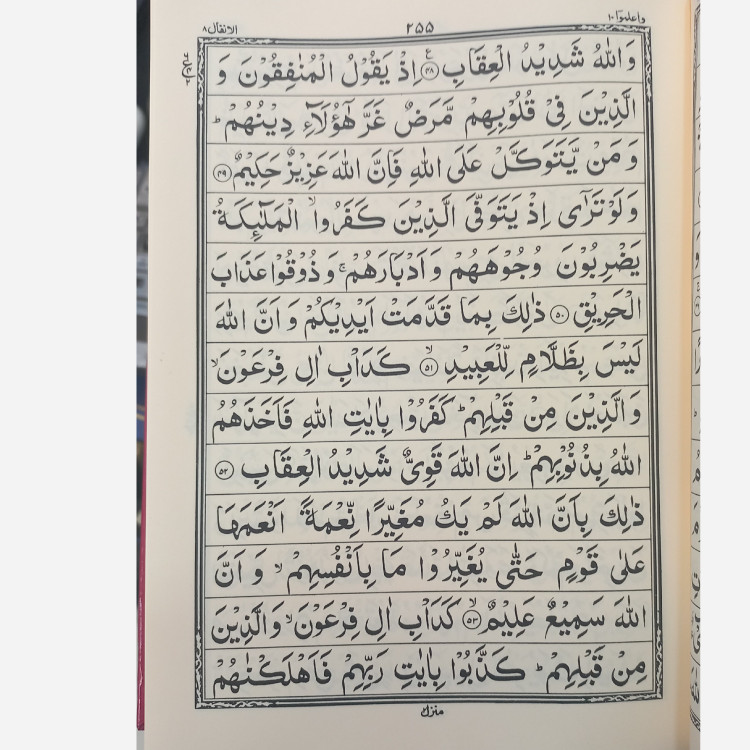 واعلموا ١٠
٢٥٥
الانفال ٨
وَاللّٰهُ شَدِيْدُ الْعِقَابِ ﴿۴۸﴾ ع اِذْ يَقُوْلُ الْمُنٰفِقُوْنَ وَ
الَّذِيْنَ فِيْ قُلُوْبِهِمْ مَّرَضٌ غَرَّ هٰٓؤُلَآءِ دِيْنُهُمْ ؕ
وَ مَنْ يَّتَوَكَّلْ عَلَى اللّٰهِ فَاِنَّ اللّٰهَ عَزِيْزٌ حَكِيْمٌ ﴿۴۹﴾
وَ لَوْ تَرٰٓى اِذْ يَتَوَفَّى الَّذِيْنَ كَفَرُوا ۙ الْمَلٰٓئِكَةُ
يَضْرِبُوْنَ وُجُوْهَهُمْ وَ اَدْبَارَهُمْ ۚ وَ ذُوْقُوْا عَذَابَ
الْحَرِيْقِ ﴿۵۰﴾ ذٰلِكَ بِمَا قَدَّمَتْ اَيْدِيْكُمْ وَ اَنَّ اللّٰهَ
لَيْسَ بِظَلَّامٍ لِّلْعَبِيْدِ ۙ﴿۵۱﴾ كَدَاْبِ اٰلِ فِرْعَوْنَ ۙ
وَ الَّذِيْنَ مِنْ قَبْلِهِمْ ؕ كَفَرُوْا بِاٰيٰتِ اللّٰهِ فَاَخَذَهُمُ
اللّٰهُ بِذُنُوْبِهِمْ ؕ اِنَّ اللّٰهَ قَوِيٌّ شَدِيْدُ الْعِقَابِ ﴿۵۲﴾
ذٰلِكَ بِاَنَّ اللّٰهَ لَمْ يَكُ مُغَيِّرًا نِّعْمَةً اَنْعَمَهَا
عَلٰى قَوْمٍ حَتّٰى يُغَيِّرُوْا مَا بِاَنْفُسِهِمْ ۙ وَ اَنَّ
اللّٰهَ سَمِيْعٌ عَلِيْمٌ ۙ﴿۵۳﴾ كَدَاْبِ اٰلِ فِرْعَوْنَ ۙ وَ الَّذِيْنَ
مِنْ قَبْلِهِمْ ؕ كَذَّبُوْا بِاٰيٰتِ رَبِّهِمْ فَاَهْلَكْنٰهُمْ